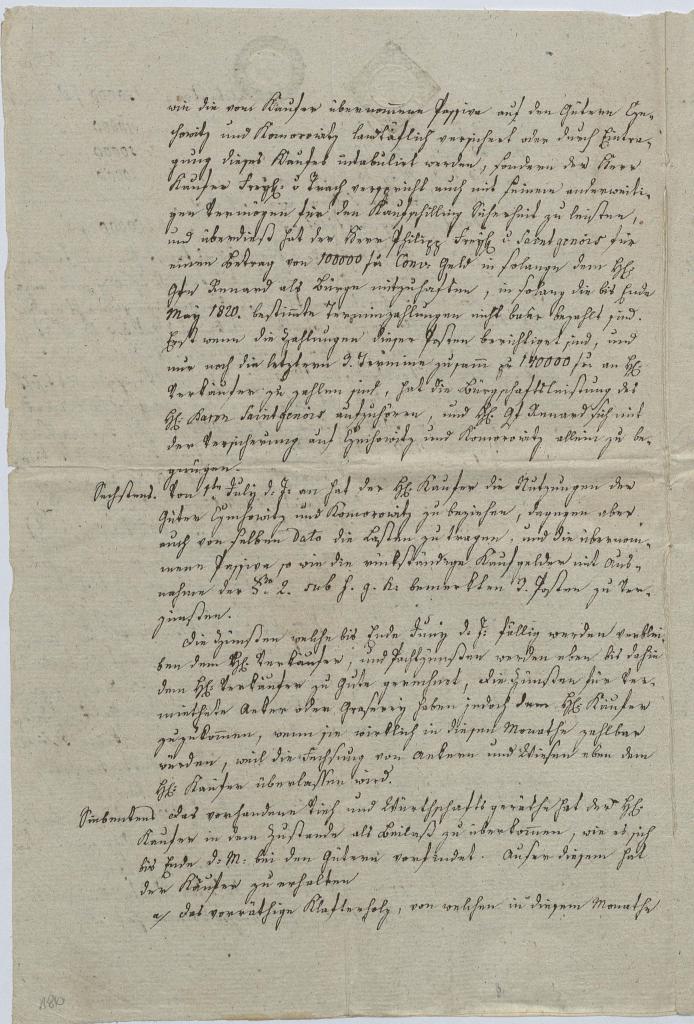 wie die vom Kaufer übernommene Passiva auf den Gütern Cze-
chowitz und Komorowitz landtäflich versichert oder durch Eintra-
gung dieses Kaufes intabulirt werden, sondern der Herr
Kaufer Freyh: v Trach verspricht auch mit seinem anderweiti-
gen Vermögen für den Kaufschilling Sicherheit zu leisten,
und überdieß hat der Herr Philipp Freyh v Saintgenois für
einen Betrag von 100000 fr Conv: Geld in solange dem H:
Gfn Renard als Bürge mitzuhaften, in solang die bis Ende
May 1820. bestimmte Terminzahlungen nicht baar bezahlt sind.
Erst wenn die Zahlungen dieser Posten berichtiget sind, und
nur noch die letztern 3. Termine zusamm pr 140000 fr an H:
Verkäufer zu zahlen sind, hat die Bürgschaftsleistung des
H: Baron Saintgenois aufzuhören, und H: Gf Renard sich mit
der Versicherung auf Czechowitz und Komorowitz allein zu be-
gnügen.
Sechstens. Vom 1ten July d. J: an hat der H: Kaufer die Nutzungen der
Güter Czechowitz und Komorowitz zu beziehen, dagegen aber
auch von selben Dato die Lasten zu tragen, und die übernom-
mene Passiva so wie die rückständige Kaufgelder mit Aus-
nahme der 2. sub f. g. h. bemerkten 3. Posten zu Ver-
zinsen.
Die Zünßen welche bis Ende Juny d. J: fällig werden verblei-
ben dem H: Verkäufer, und Pachtzünßen werden eben bis dahin
dem H: Verkäufer zu Gute gerechnet, die Zünßen für Ver-
miethete Aeker oder Graserey haben jedoch dem H: Kaufer
zuzukommen, wenn sie wirklich in diesem Monathe zahlbar
würden, weil die Fechsung von Aekern und Wiesen eben dem
H: Kaufer überlassen wird.
Siebentens Das vorhandene Vieh und Würthschaftsgeräthe hat der H:
Kaufer in dem Zustande als Beilaß zu überkomen, wie es sich
bis Ende d. M: bei den Gütern vorfindet. Außer diesem hat
der Käufer zu erhalten
a/ Das vorräthige Klafterholz, von welchen in diesem Monathe